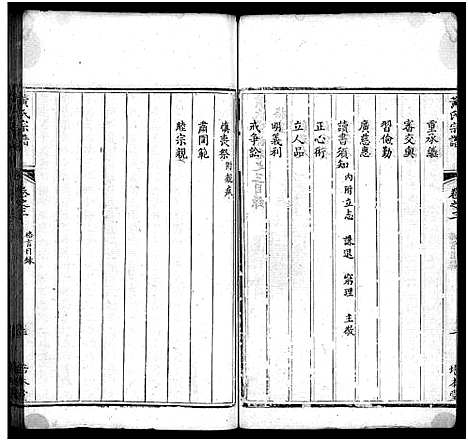 黃氏宗譜
卷之二
重承繼
審交與
習儉勤
廣慈惠
讀書須知 內附立志 謙退 窮理 主敬
正心術
立人品
明義利
戒爭訟
慎喪祭 附親疾
肅閨範
睦宗親
黃氏宗譜
卷之二
格言目錄